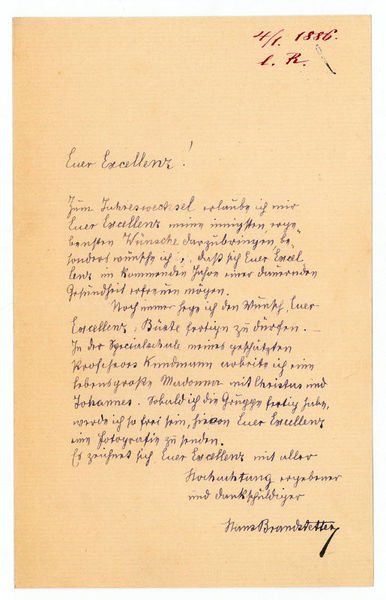 4/1. 1886.
l. R.
Euer Excellenz!
Zum Jahreswechsel erlaube ich mir
Euer Excellenz meine innigsten erge-
bensten Wünsche darzubringen, be-
sonders wünsche ich, daß sich Euer Excel-
lenz im kommenden Jahre einer dauernden
Gesundheit erfreuen mögen.
Noch immer hege ich den Wunsch, Euer
Excellenz, Büste fertigen zu dürfen. —
In der Specialschule meines geschätzten
Professors Kundmann arbeite ich eine
lebensgroße Madonna mit Christus und
Johannes. Sobald ich die Gruppe fertig habe,
werde ich so frei sein, hievon Euer Excellenz
eine Fotografie zu senden.
Es zeichnet sich Euer Excellenz mit aller
Hochachtung ergebener
und dankschuldiger
Hans Brandstetter